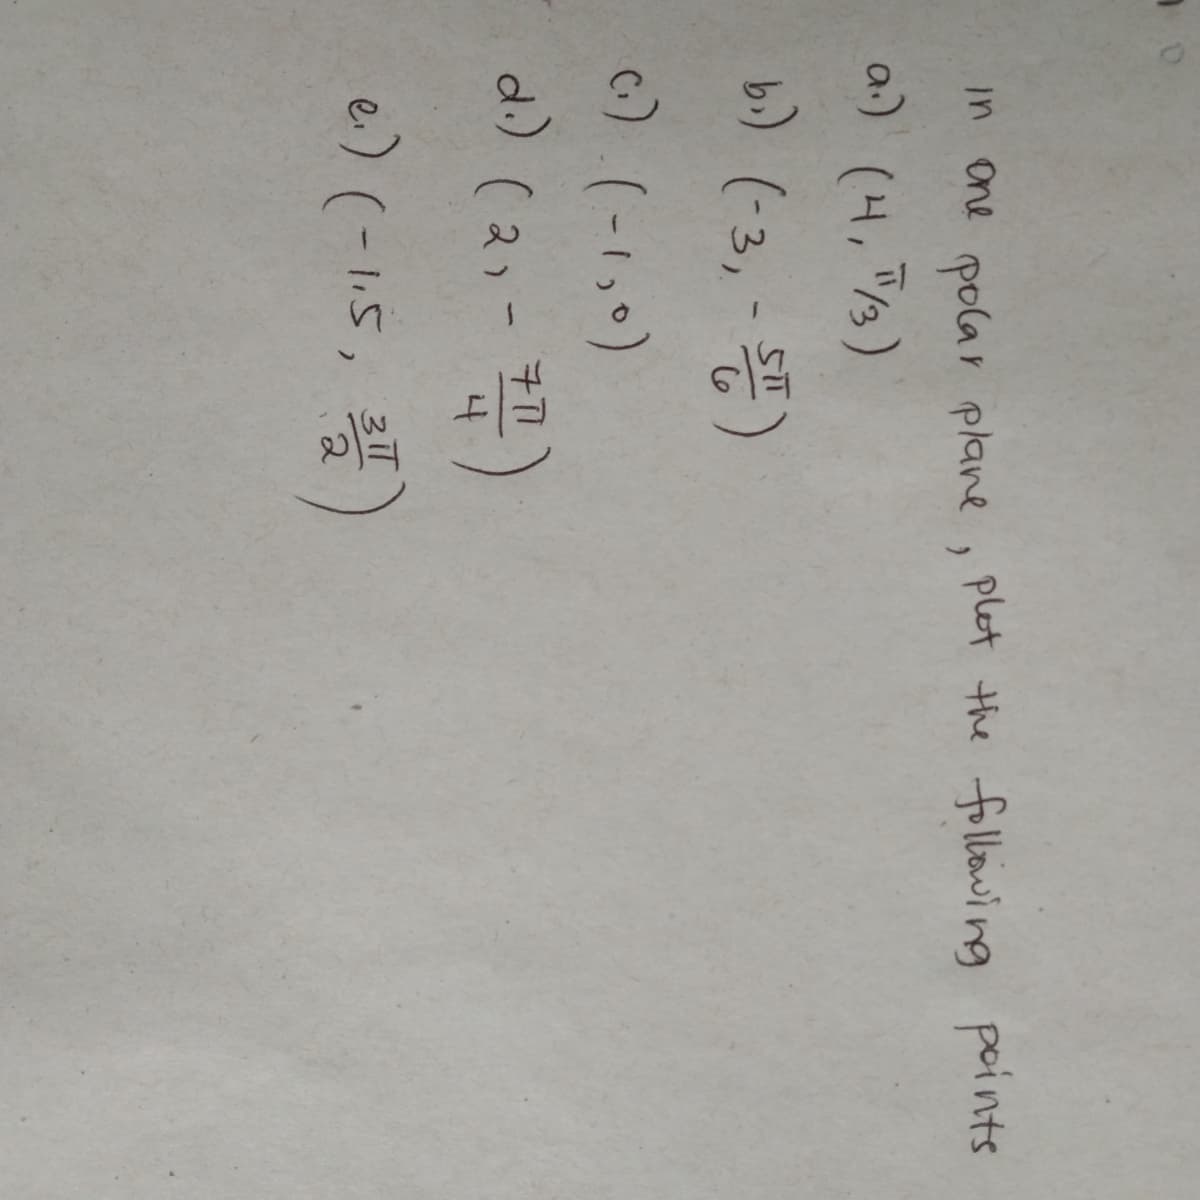 In one polar plane, plot the following points
a.) (4, π/3)
b.) (-3, - 5π/6)
c.) (-1, 0)
d.) (2, - 7π/4)
e.) (-1.5, 3π/2)